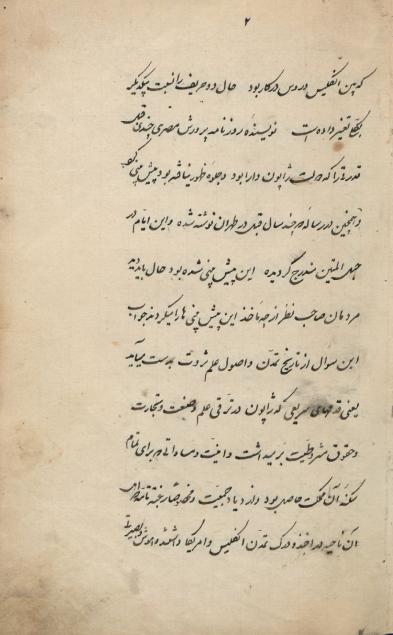 ۲
که بین انگلیس و روس در کار بود حال دو حریف را نسبت بیکدیگر
بکلی تغییر داده است نویسنده روزنامه پرورش مصری چندی قبل
قدرتی را که دولت ژاپون دارا بود و جلوه ظهور نیافته بود پیش بینی
و همچنین در رساله که چند سال قبل در طهران نوشته شده و این ایام در
حبل المتین مندرج گردیده این پیش بینی شده بود حال باید دید
مردمان صاحب نظر از چه مأخذ این پیش بینی ها را میکردند جواب
این سؤال از تاریخ تمدن و اصول علم ثروت بدست میآید
یعنی قدمهای سریعی که ژاپون در ترقی علم و صنعت و تجارت
و حقوق مشروطیت برمیداشت و امنیت و مساواتی که برای تمام
سکنه آن مملکت حاصل بود و ازدیاد جمعیت و
آن ناحیه در اخذ و درک تمدن انگلیس و امریکا داشتند